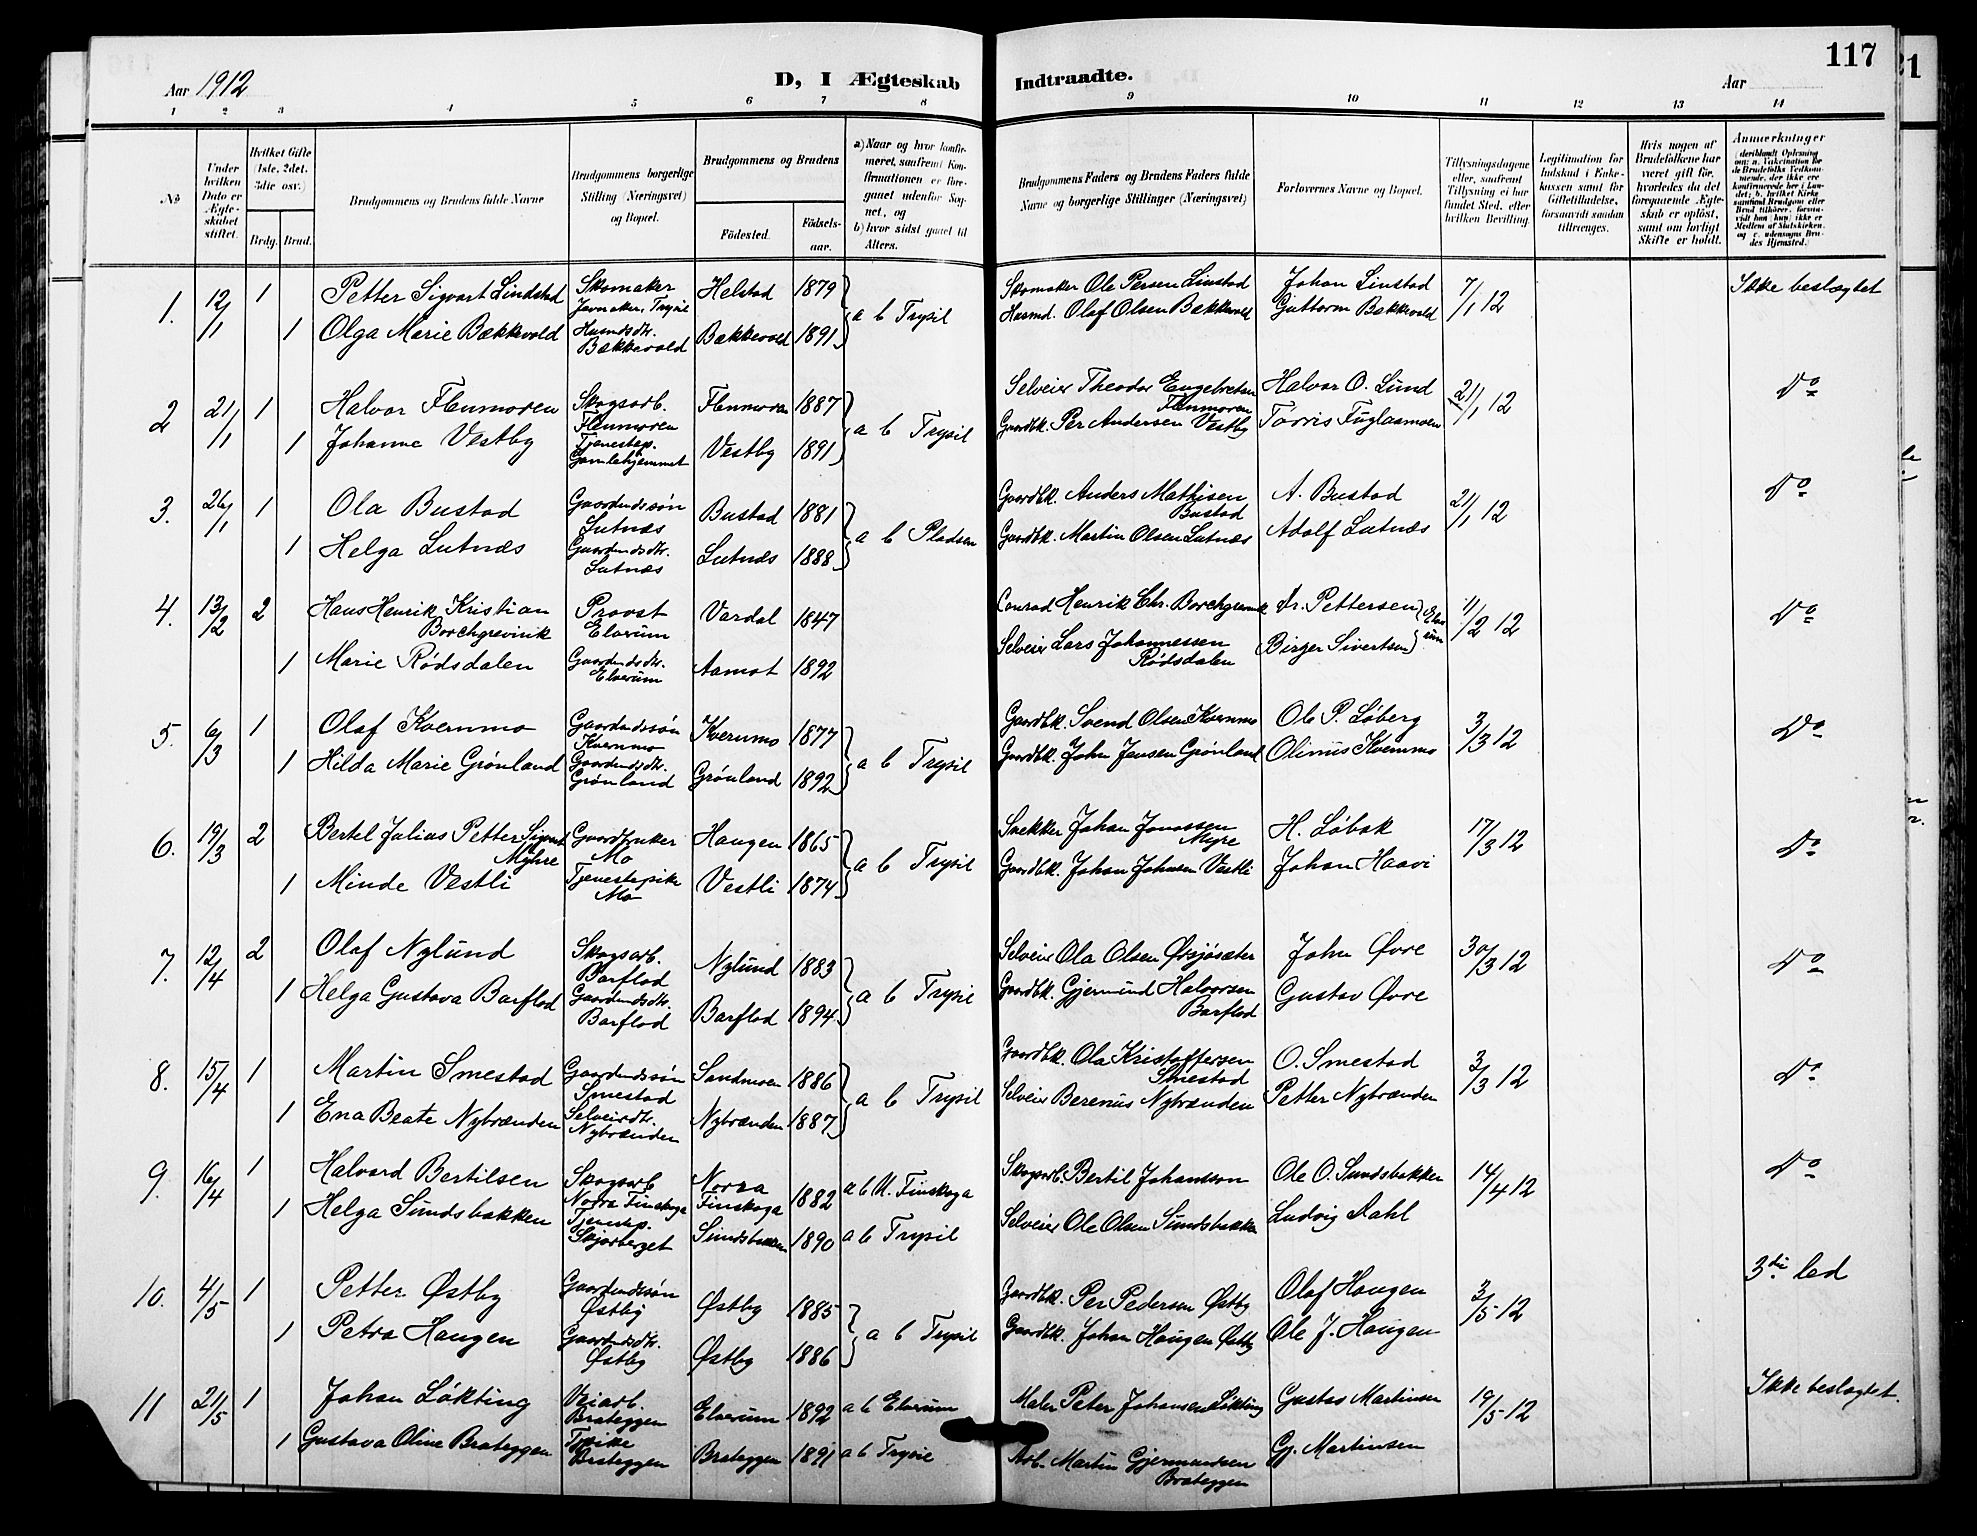 117
Aar 1912
D, I Ægteskab Indtraadte.
Aar
1 2 3 4 5 6 7 8 9 10 11 12 13 14
№
Under hvilken Dato er Ægteskabet stiftet.
Hvilket Gifte (1ste, 2det, 3die osv.)
Brdg. Brud.
Brudgommens og Brudens fulde Navne
Brudgommens borgerlige Stilling (Næringsvei) og Bopæl.
Brudgommens og Brudens
Fødested. Fødselsaar.
a) Naar og hvor konfirmeret, saafremt Konfirmationen er foregaaet udenfor Sognet, og b) hvor sidst gaaet til Alters.
Brudgommens Faders og Brudens Faders fulde Navne og borgerlige Stillinger (Næringsvei)
Forlovernes Navne og Bopæl.
Tillysningsdagene eller, saafremt Tillysning ei har fundet Sted, efter hvilken Bevilling.
Legitimation for Indskud i Enkekassen samt for Giftetilladelse, forsaavidt saadan tiltrænges.
Hvis nogen af Brudefolkene har været gift før, hvorledes da det foregaaende Ægteskab er opløst, samt om lovligt Skifte er holdt.
Anmærkninger
1. 12/1 1 Petter Sigvart Lindstad Skomaker Helstad 1879 a b Trysil Skomaker Ole Persen Linstad Johan Linstad 7/1 12 Ikke beslægtet
1 Olga Marie Bækkevold Husmdsdtr. Bækkevold Bækkevold 1891 Husmd. Olaf Olsen Bækkevold Guttorm Bækkevold
2 21/1 1 Halvor Flenmoren Skogsarb. Flenmoren Flenmoren 1887 a b Trysil Selveier Theodor Engebretsen Flenmoren Halvor O. Lund 21/1 12 Do
1 Johanne Vestby Tjenestep. Gamlehjemmet Vestby 1891 Gaardbk. Per Andersen Vestby Torris Fuglaamoen
3. 26/1 1 Ola Bustad Gaardmdssøn Lutnæs Bustad 1881 a b Pladsen Gaardbk. Anders Mathisen Bustad A. Bustad 21/1 12 Do
1 Helga Lutnæs Gaardmdsdtr. Lutnæs Lutnæs 1888 Gaardbk. Martin Olsen Lutnæs Adolf Lutnæs
4. 13/2 2 Hans Henrik Kristian Borchgrevink Provst Elverum Vardal 1847 Conrad Henrik Chr. Borchgrevink Dr. Pettersen 11/2 12 Do
1 Marie Rødsdalen Gaardmdsdtr. Elverum Aamot 1892 Selveier Lars Johannessen Rødsdalen Birger Sivertsen Elverum
5. 6/3 1 Olaf Kvernmo Gaardmdssøn Kvernmo Kvernmo 1877 a b Trysil Gaardbk. Svend Olsen Kvernmo Ole P. Løberg 3/3 12 Do
1 Hilda Marie Grønland Gaardmdsdtr. Grønland Grønland 1892 Gaardbk. John Jensen Grønland Olinus Kvernmo
6. 19/3 2 Bertel Julius Petter Sigvart Myhre Gaardbruker Mo Haugen 1865 a b Trysil Snekker Johan Jonassen Myre H. Løbak 17/3 12 Do
1 Minde Vestli Tjenestepike Mo Vestli 1874 Gaardbk. Johan Johnsen Vestli Johan Haavi
7. 12/4 2 Olaf Nylund Skogsarb. Barflod Nylund 1883 a b Trysil Selveier Ola Olsen Ørsjøsæter John Øvre 30/3 12 Do
1 Helga Gustava Barflod Gaardmdsdtr. Barflod Barflod 1894 Gaardbk. Gjermund Halvorsen Barflod Gustav Øvre
8. 15/4 1 Martin Smestad Gaardmdssøn Smestad Sandmoen 1886 a b Trysil Gaardbk. Ola Kristoffersen Smestad O. Smestad 3/3 12 Do
1 Ena Beate Nybrænden Selveirdtr. Nybrænden Nybrænden 1887 Selveier Berenus Nybrænden Petter Nybrænden
9. 16/4 1 Halvard Bertilsen Skogsarb. Norra Finskoga Norra Finskoga 1882 a b N. Finskoga Skogsarb. Bertil Johansson Ole O. Sundsbakken 14/4 12 Do
1 Helga Sundsbakken Tjenestep. Skjærberget Sundsbakken 1890 a b Trysil Selveier Ole Olsen Sundsbakken Ludvig Dahl
10. 4/5 1 Petter Østby Gaardmdssøn Østby Østby 1885 a b Trysil Gaardbk. Per Pedersen Østby Olaf Haugen 3/5 12 3die led
1 Petra Haugen Gaardmdsdtr. Østby Østby 1886 Gaardbk. Johan Haugen Østby Ole J. Haugen
11 21/5 1 Johan Løkting Veiarb. Brateggen Elverum 1892 a b Elverum Maler Peter Johansen Løkting Gustav Martinsen 19/5 12 Ikke beslægtet.
1 Gustava Oline Brateggen Tpike Brateggen Brateggen 1891 a b Trysil Arb. Martin Gjermundsen Brateggen Gj. Martinsen